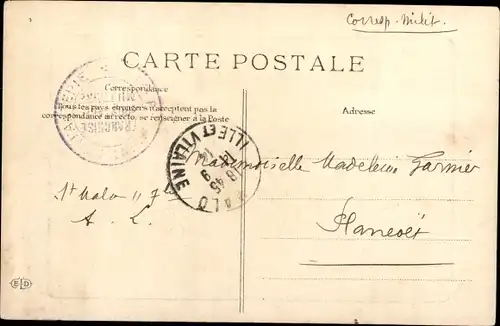 Corresp. Milit.
CARTE POSTALE
Correspondance
Tous les pays étrangers n'acceptent pas la
correspondance au recto, se renseigner à la Poste
Adresse
ILLE ET VILAINE
18 45
9
Mademoiselle Madeleine Garnier
St Malo
A. L.
Plancoët
ELD